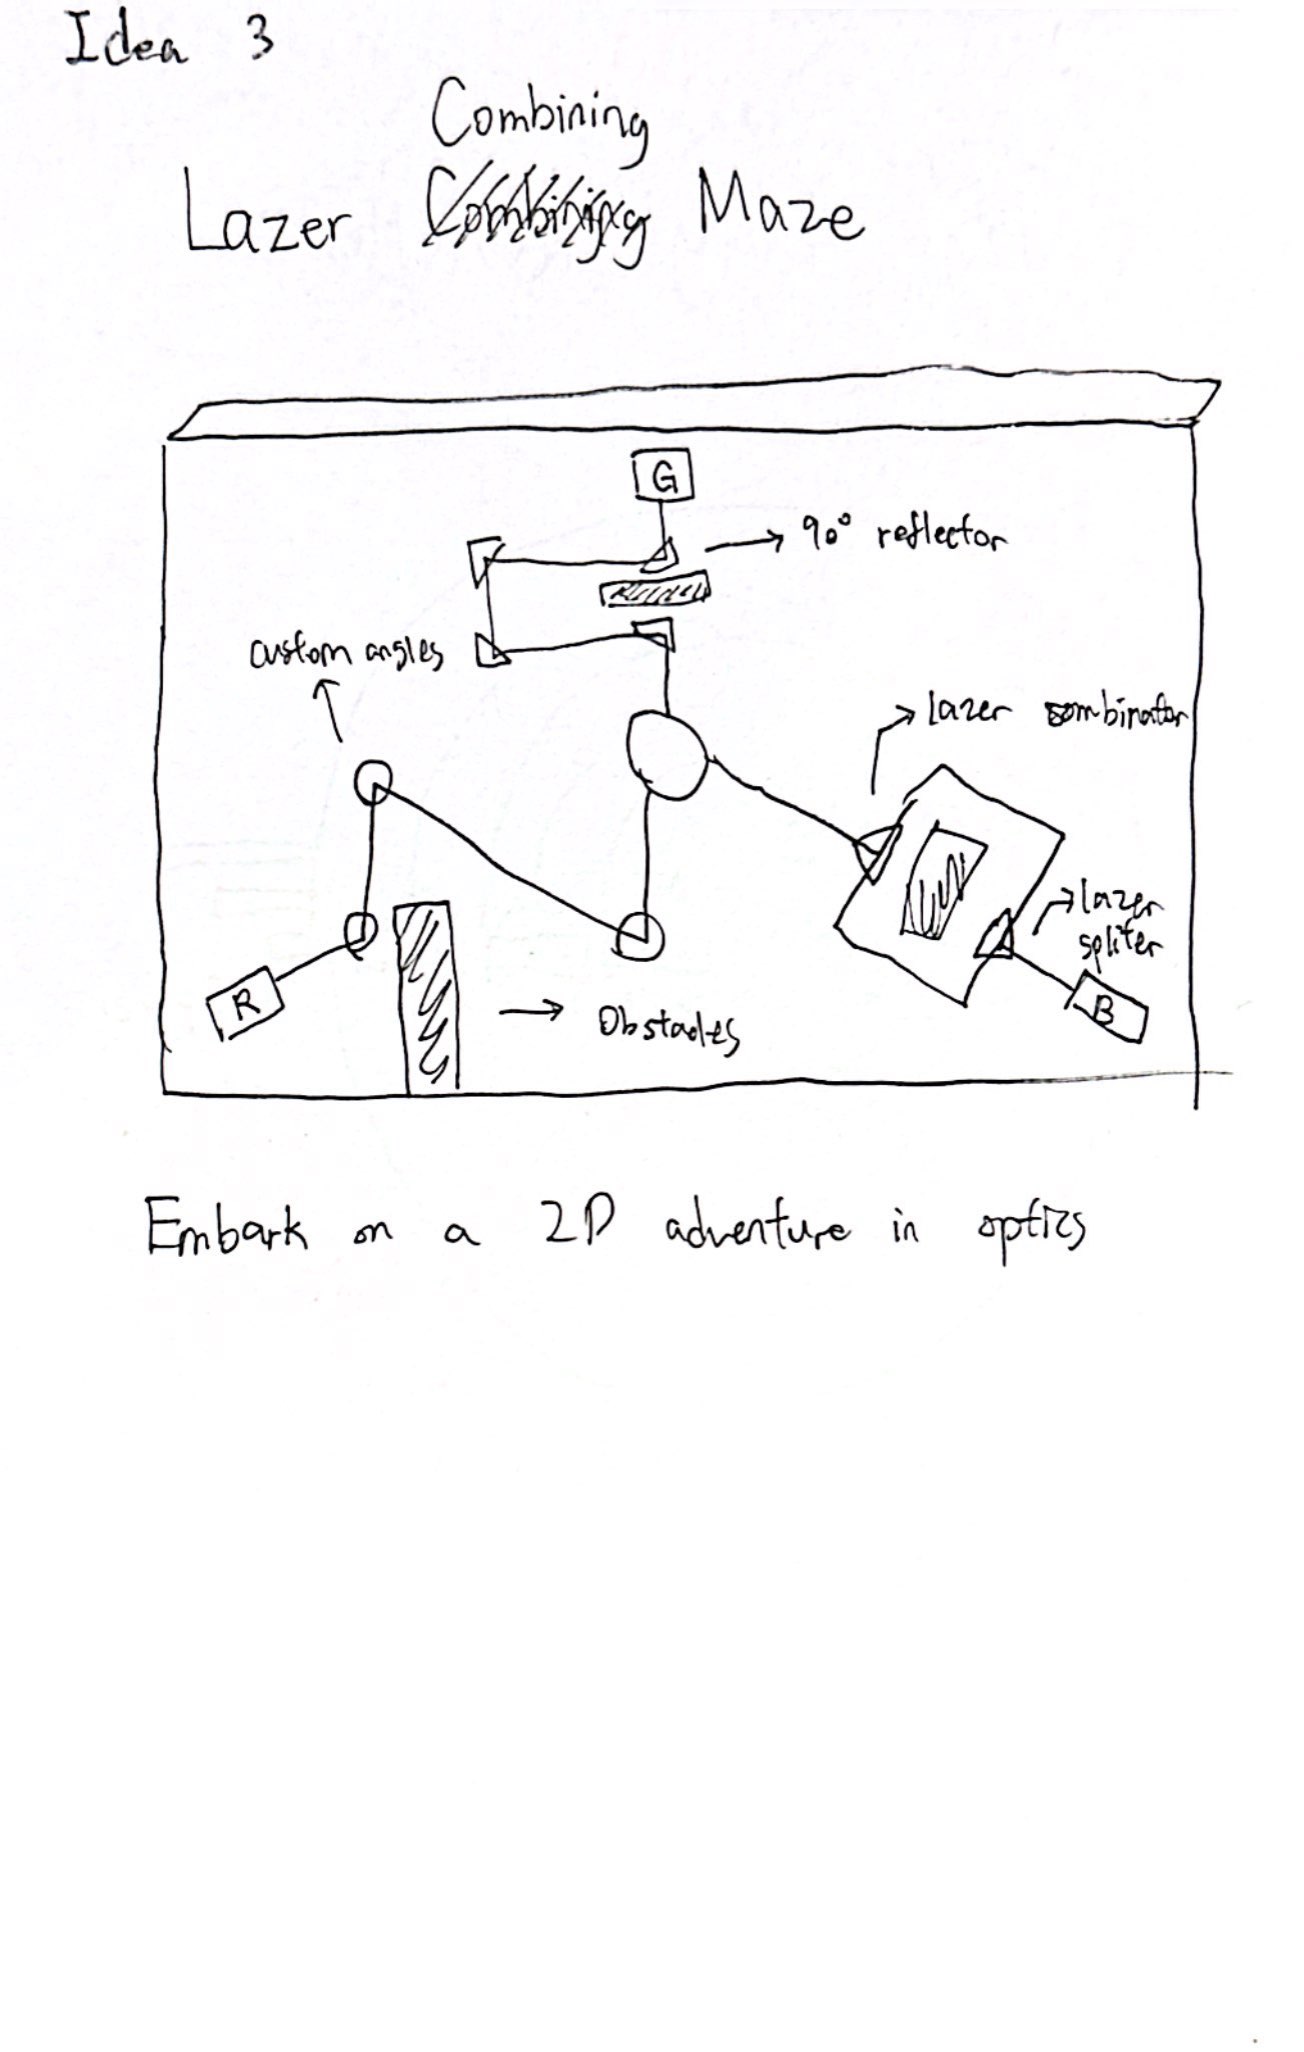 Idea 3
Combining
Lazer Combining Maze
G
→ 90° reflector
custom angles
lazer combinator
lazer
spliter
R
B
→ Obstacles
Embark on a 2D adventure in optics